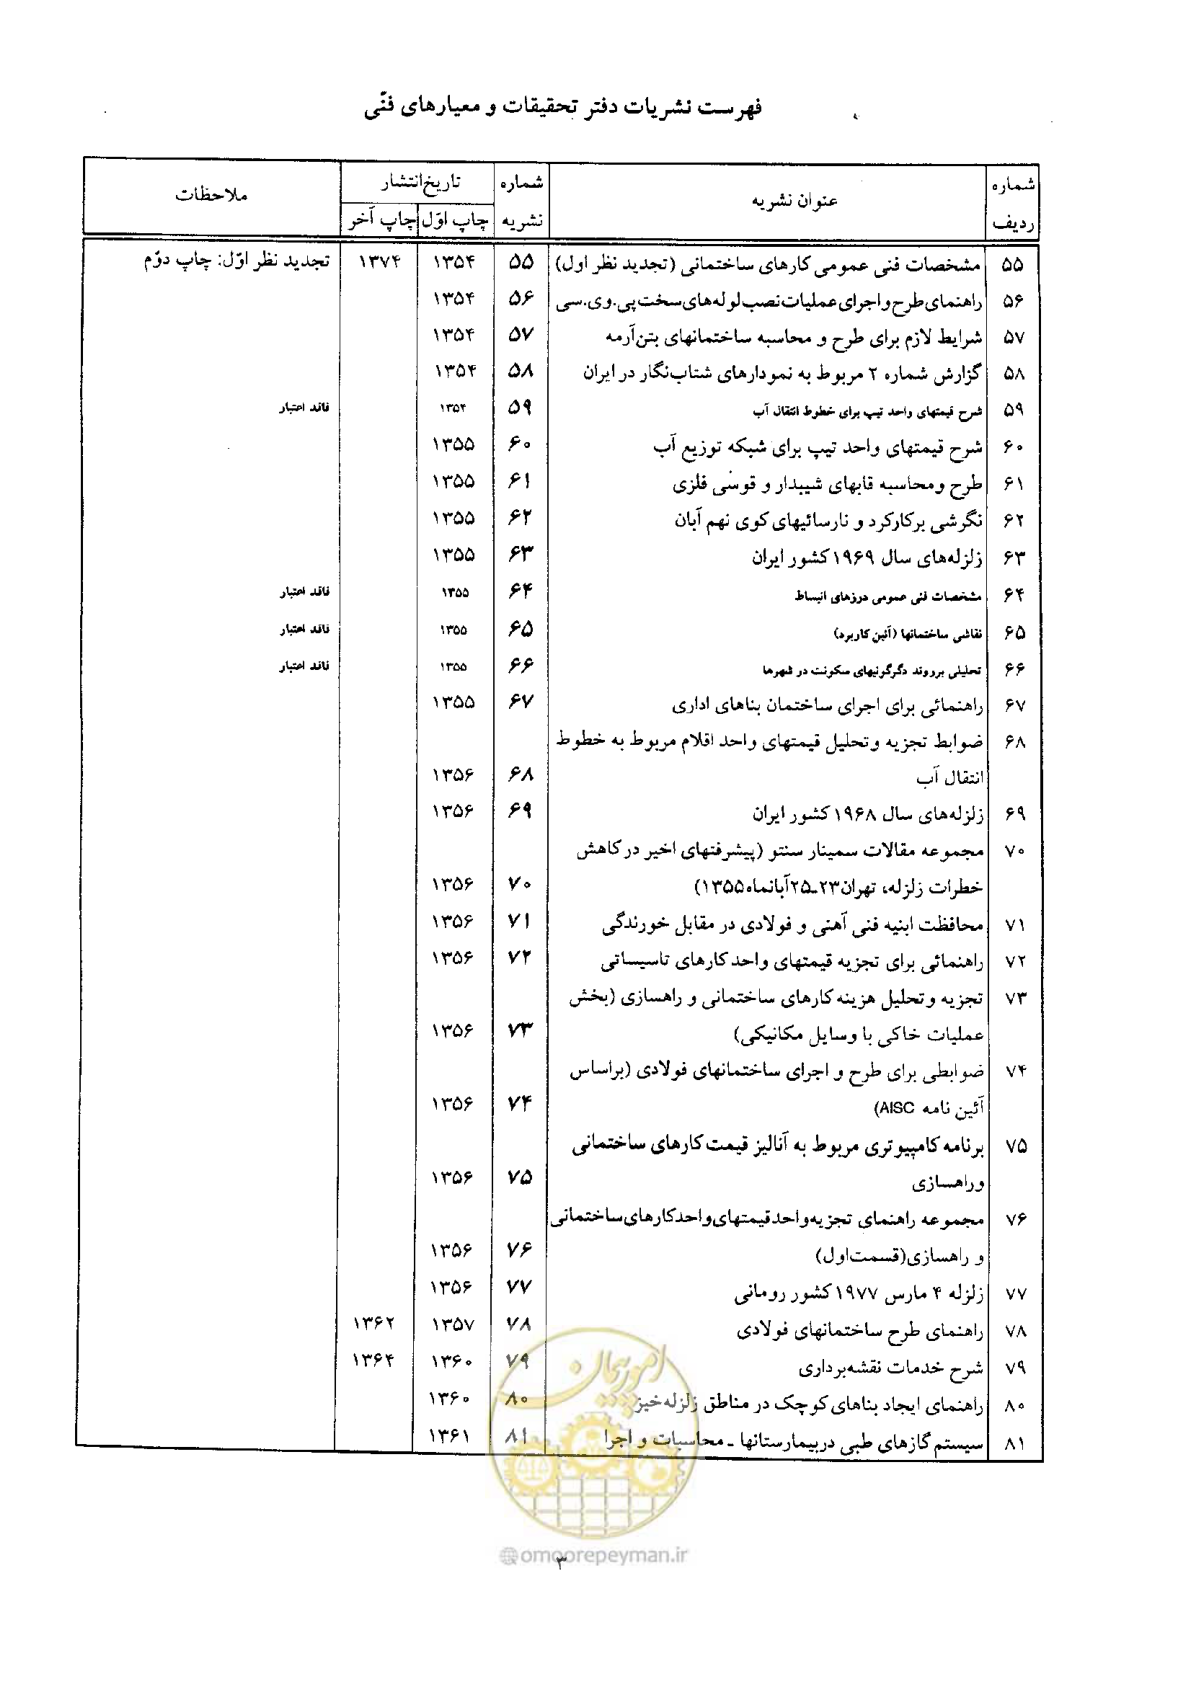 فهرست نشریات دفتر تحقیقات و معیارهای فنّی
شماره ردیف | عنوان نشریه | شماره نشریه | تاریخ انتشار | ملاحظات
چاپ اوّل | چاپ آخر
۵۵ | مشخصات فنی عمومی کارهای ساختمانی (تجدید نظر اول) | ۵۵ | ۱۳۵۴ | ۱۳۷۴ | تجدید نظر اوّل: چاپ دوّم
۵۶ | راهنمای طرح و اجرای عملیات نصب لوله‌های سخت پی.وی.سی | ۵۶ | ۱۳۵۴
۵۷ | شرایط لازم برای طرح و محاسبه ساختمانهای بتن‌آرمه | ۵۷ | ۱۳۵۴
۵۸ | گزارش شماره ۲ مربوط به نمودارهای شتاب‌نگار در ایران | ۵۸ | ۱۳۵۴
۵۹ | شرح قیمتهای واحد تیپ برای خطوط انتقال آب | ۵۹ | ۱۳۵۴ | فاقد اعتبار
۶۰ | شرح قیمتهای واحد تیپ برای شبکه توزیع آب | ۶۰ | ۱۳۵۵
۶۱ | طرح و محاسبه قابهای شیبدار و قوسی فلزی | ۶۱ | ۱۳۵۵
۶۲ | نگرشی برکارکرد و نارسائیهای کوی نهم آبان | ۶۲ | ۱۳۵۵
۶۳ | زلزله‌های سال ۱۹۶۹ کشور ایران | ۶۳ | ۱۳۵۵
۶۴ | مشخصات فنی عمومی درزهای انبساط | ۶۴ | ۱۳۵۵ | فاقد اعتبار
۶۵ | نقاشی ساختمانها (آئین کاربرد) | ۶۵ | ۱۳۵۵ | فاقد اعتبار
۶۶ | تحلیلی برروند دگرگونیهای سکونت در شهرها | ۶۶ | ۱۳۵۵ | فاقد اعتبار
۶۷ | راهنمائی برای اجرای ساختمان بناهای اداری | ۶۷ | ۱۳۵۵
۶۸ | ضوابط تجزیه و تحلیل قیمتهای واحد اقلام مربوط به خطوط
انتقال آب | ۶۸ | ۱۳۵۶
۶۹ | زلزله‌های سال ۱۹۶۸ کشور ایران | ۶۹ | ۱۳۵۶
۷۰ | مجموعه مقالات سمینار سنتو (پیشرفتهای اخیر در کاهش
خطرات زلزله، تهران ۲۳ـ۲۵ آبانماه ۱۳۵۵) | ۷۰ | ۱۳۵۶
۷۱ | محافظت ابنیه فنی آهنی و فولادی در مقابل خورندگی | ۷۱ | ۱۳۵۶
۷۲ | راهنمائی برای تجزیه قیمتهای واحد کارهای تاسیساتی | ۷۲ | ۱۳۵۶
۷۳ | تجزیه و تحلیل هزینه کارهای ساختمانی و راهسازی (بخش
عملیات خاکی با وسایل مکانیکی) | ۷۳ | ۱۳۵۶
۷۴ | ضوابطی برای طرح و اجرای ساختمانهای فولادی (براساس
آئین نامه AISC) | ۷۴ | ۱۳۵۶
۷۵ | برنامه کامپیوتری مربوط به آنالیز قیمت کارهای ساختمانی
وراهسازی | ۷۵ | ۱۳۵۶
۷۶ | مجموعه راهنمای تجزیه واحد قیمتهای واحد کارهای ساختمانی
و راهسازی (قسمت اول) | ۷۶ | ۱۳۵۶
۷۷ | زلزله ۴ مارس ۱۹۷۷ کشور رومانی | ۷۷ | ۱۳۵۶
۷۸ | راهنمای طرح ساختمانهای فولادی | ۷۸ | ۱۳۵۷ | ۱۳۶۲
۷۹ | شرح خدمات نقشه‌برداری | ۷۹ | ۱۳۶۰ | ۱۳۶۴
۸۰ | راهنمای ایجاد بناهای کوچک در مناطق زلزله‌خیز | ۸۰ | ۱۳۶۰
۸۱ | سیستم گازهای طبی در بیمارستانها ـ محاسبات و اجرا | ۸۱ | ۱۳۶۱
امور پیمان
@omoorepeyman.ir
۳